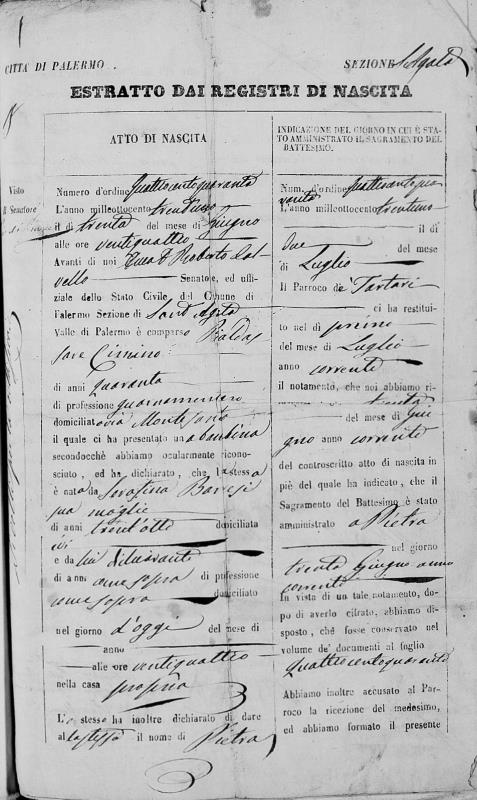 CITTÀ DI PALERMO.
SEZIONE S. Agata
ESTRATTO DAI REGISTRI DI NASCITA
ATTO DI NASCITA
Numero d'ordine quattrocentoquaranta
L'anno milleottocento trentuno
il dì trenta del mese di Giugno
alle ore ventiquattro
Avanti di noi Duca D. Roberto Cal
vello Senatore, ed uffi-
ziale dello Stato Civile del Comune di
Palermo Sezione di Sant'Agata
Valle di Palermo è comparso Baldas
sare Cimino
di anni Quaranta
di professione guarnamentaro
domiciliato via Montesanto
il quale ci ha presentato una bambina
secondochè abbiamo ocularmente ricono-
sciuto, ed ha dichiarato, che la stessa
è nata da Serafina Barresi
sua moglie
di anni trent'otto domiciliata
ivi
e da lui dichiarante
di anni come sopra di professione
come sopra domiciliato
nel giorno d'oggi del mese di
anno
alle ore ventiquattro
nella casa propria
Lo stesso ha inoltre dichiarato di dare
alla stessa il nome di Pietra
Visto
Il Senatore
INDICAZIONE DEL GIORNO IN CUI È STA-
TO AMMINISTRATO IL SAGRAMENTO DEL
BATTESIMO.
Num. d'ordine quattrocentoqua
ranta
L'anno milleottocento trentuno
il dì
due del mese
di Luglio
Il Parroco de' Tartari
ci ha restitui-
to nel dì primo
del mese di Luglio
anno corrente
il notamento, che noi abbiamo ri-
trenta
del mese di Giu
gno anno corrente
del controscritto atto di nascita in
piè del quale ha indicato, che il
Sagramento del Battesimo è stato
amministrato a Pietra
nel giorno
trenta Giugno anno
corrente
In vista di un tale notamento, do-
po di averlo cifrato, abbiamo di-
sposto, che fosse conservato nel
volume de' documenti al foglio
quattrocentoquaranta
Abbiamo inoltre accusato al Par-
roco la ricezione del medesimo,
ed abbiamo formato il presente